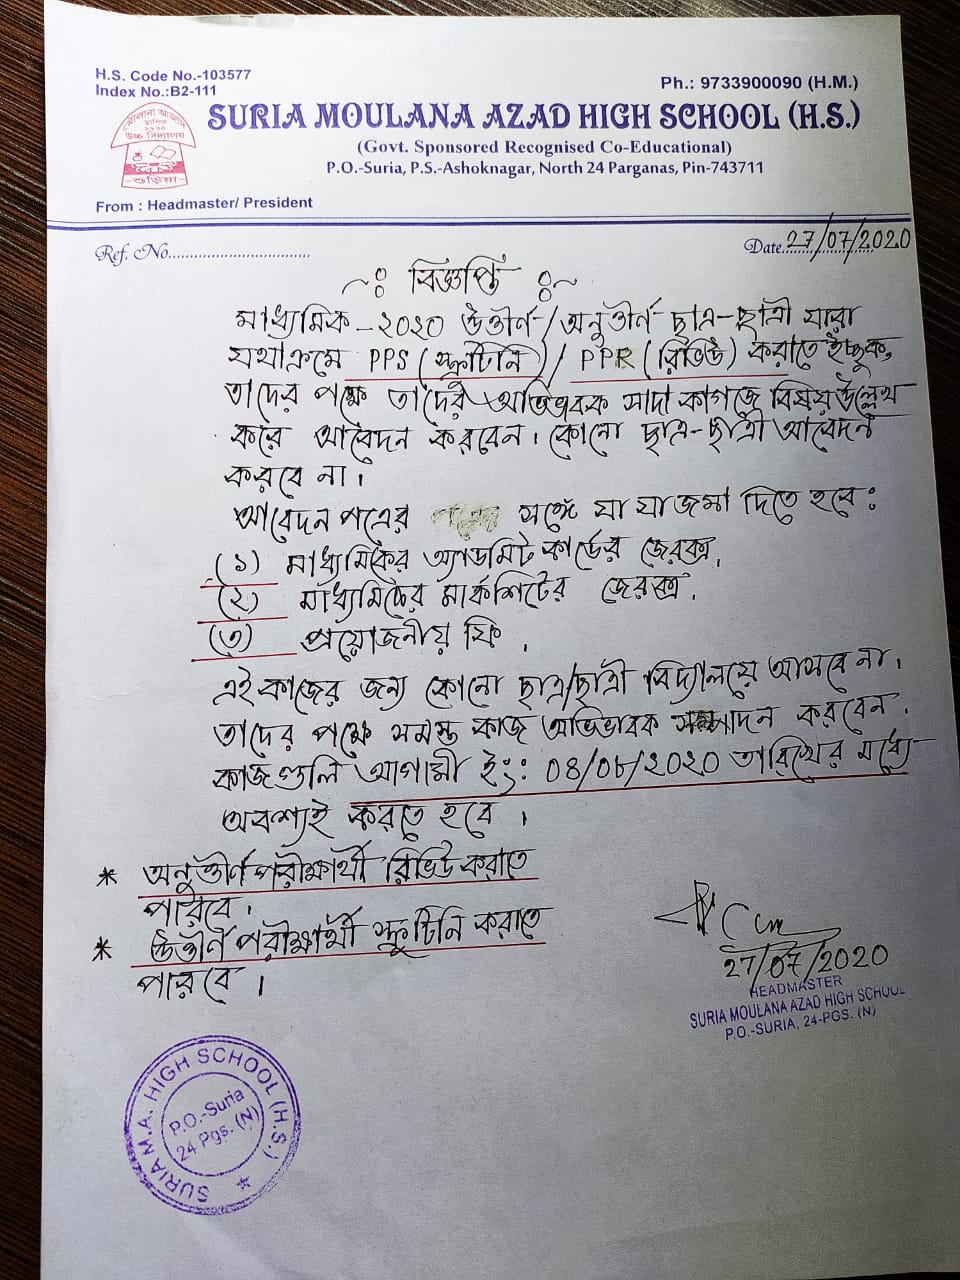 H.S. Code No.-103577
Index No.:B2-111
Ph.: 9733900090 (H.M.)
মৌলানা আজাদ
স্থাপিত
উচ্চ বিদ্যালয়
শুড়িয়া
SURIA MOULANA AZAD HIGH SCHOOL (H.S.)
(Govt. Sponsored Recognised Co-Educational)
P.O.-Suria, P.S.-Ashoknagar, North 24 Parganas, Pin-743711
From : Headmaster/ President
Ref. No................................
Date. 27/07/2020
বিজ্ঞপ্তি
মাধ্যমিক-২০২০ উত্তীর্ণ/অনুত্তীর্ণ ছাত্র-ছাত্রী যারা
যথাক্রমে PPS (স্ক্রুটিনি)/ PPR (রিভিউ) করাতে ইচ্ছুক,
তাদের পক্ষে তাদের অভিভাবক সাদা কাগজে বিষয় উল্লেখ
করে আবেদন করবেন। কোনো ছাত্র-ছাত্রী আবেদন
করবে না।
আবেদন পত্রের সঙ্গে যা যা জমা দিতে হবে:
(১) মাধ্যমিকের অ্যাডমিট কার্ডের জেরক্স,
(২) মাধ্যমিকের মার্কশিটের জেরক্স,
(৩) প্রয়োজনীয় ফি,
এই কাজের জন্য কোনো ছাত্র/ছাত্রী বিদ্যালয়ে আসবে না,
তাদের পক্ষে সমস্ত কাজ অভিভাবক সম্পাদন করবেন,
কাজগুলি আগামী ইং: তারিখের মধ্যে
অবশ্যই করতে হবে।
* অনুত্তীর্ণ পরীক্ষার্থী রিভিউ করাতে
পারবে,
* উত্তীর্ণ পরীক্ষার্থী স্ক্রুটিনি করাতে
পারবে।
27/07/2020
HEADMASTER
SURIA MOULANA AZAD HIGH SCHOOL
P.O.-SURIA, 24-PGS. (N)
SURIA M.A. HIGH SCHOOL (H.S.)
P.O.-Suria
24 Pgs. (N)